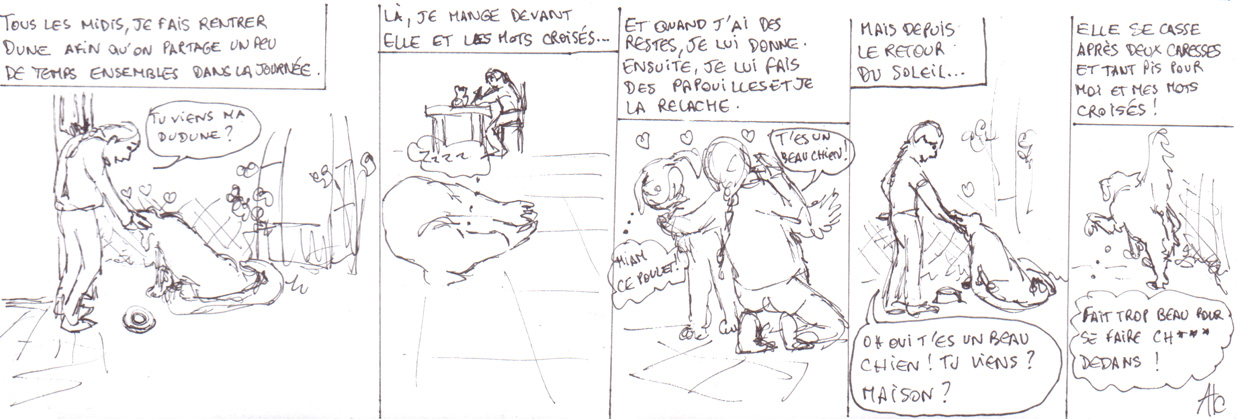 TOUS LES MIDIS, JE FAIS RENTRER
DUNE AFIN QU'ON PARTAGE UN PEU
DE TEMPS ENSEMBLES DANS LA JOURNÉE.
TU VIENS MA
DUDUNE ?
LÀ, JE MANGE DEVANT
ELLE ET LES MOTS CROISÉS...
ZZZZ
ET QUAND J'AI DES
RESTES, JE LUI DONNE.
ENSUITE, JE LUI FAIS
DES PAPOUILLES ET JE
LA RELACHE.
T'ES UN
BEAU CHIEN!
MIAM
CE POULET!
MAIS DEPUIS
LE RETOUR
DU SOLEIL...
OH OUI T'ES UN BEAU
CHIEN! TU VIENS?
MAISON?
ELLE SE CASSE
APRÈS DEUX CARESSES
ET TANT PIS POUR
MOI ET MES MOTS
CROISÉS!
FAIT TROP BEAU POUR
SE FAIRE CH***
DEDANS!
Alc